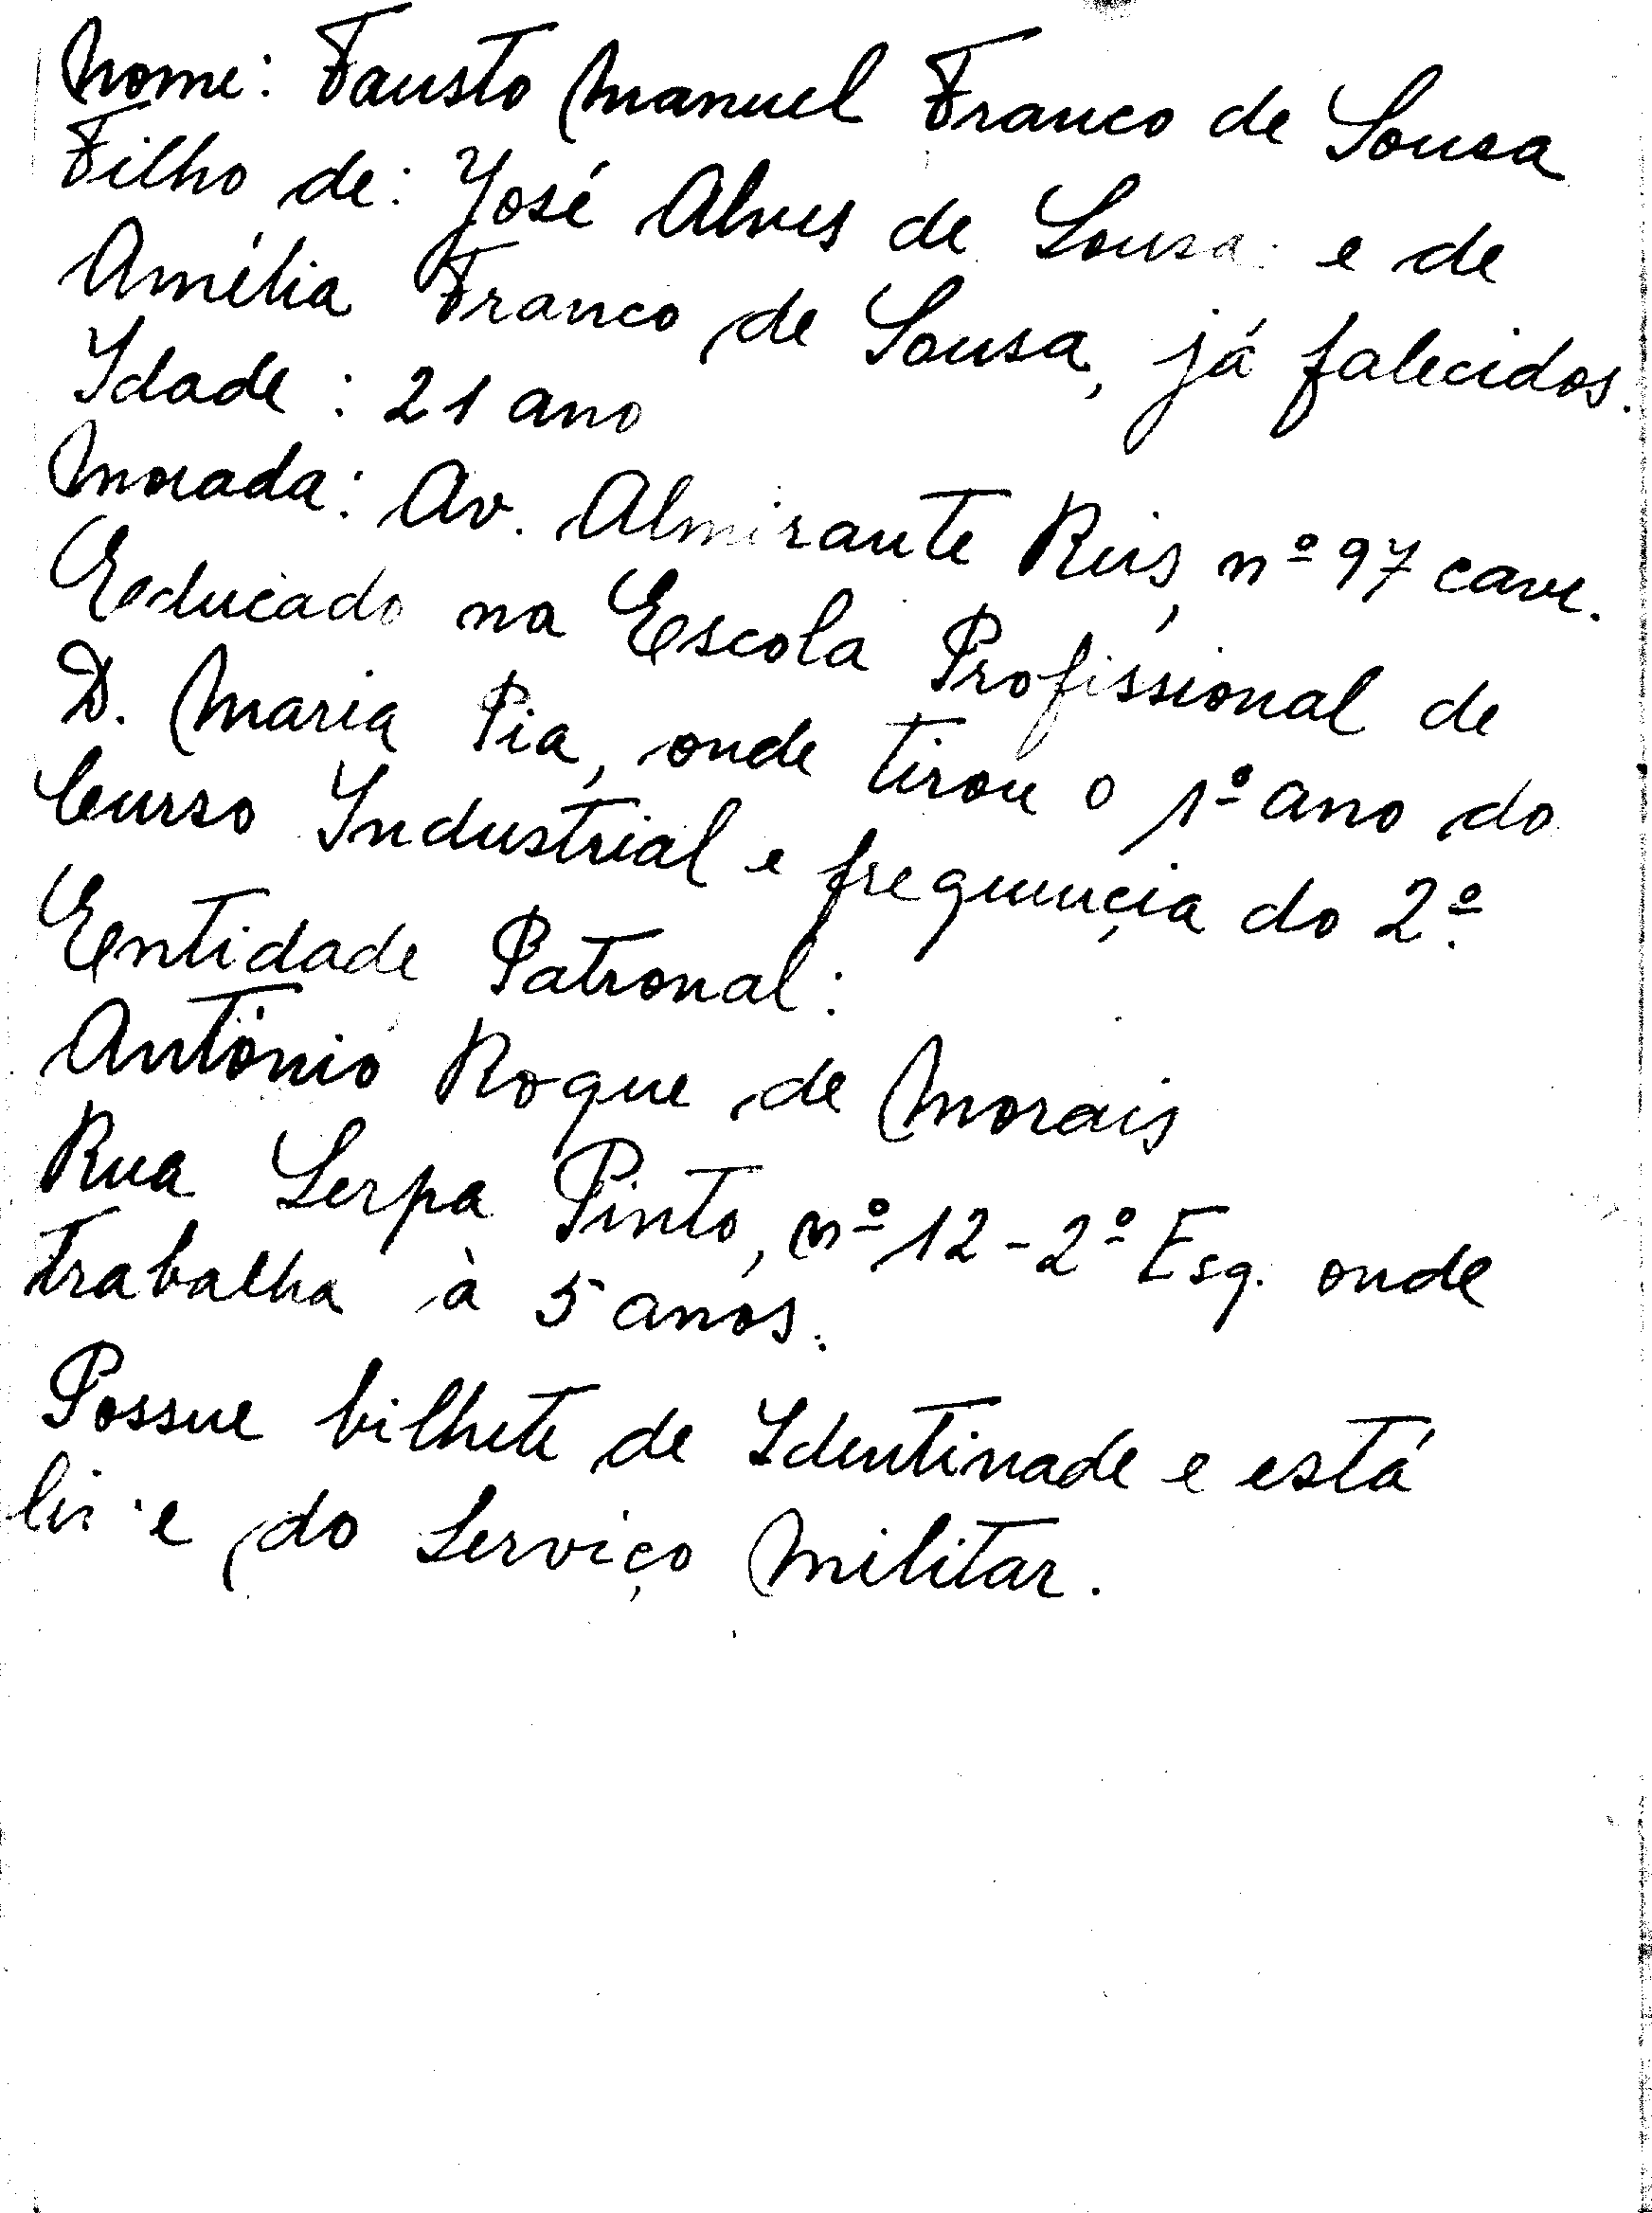 Nome: Fausto Manuel Franco de Sousa
Filho de: José Alves de Sousa e de
Amélia Franco de Sousa, já falecidos.
Idade: 21 ano
Morada: Av. Almirante Reis, nº 97 cave.
Educado na Escola Profissional de
D. Maria Pia, onde tirou o 1º ano do
Curso Industrial e frequençia do 2º.
Entidade Patronal:
António Roque de Morais
Rua Serpa Pinto, nº 12-2º Esq. onde
trabalha à 5 anos.
Possue bilhete de Identinade e está
livre do Serviço Militar.